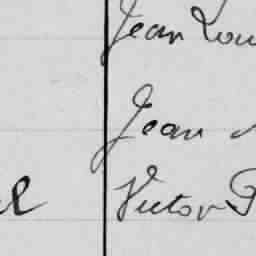 Jean Lou
Jean
Victor P